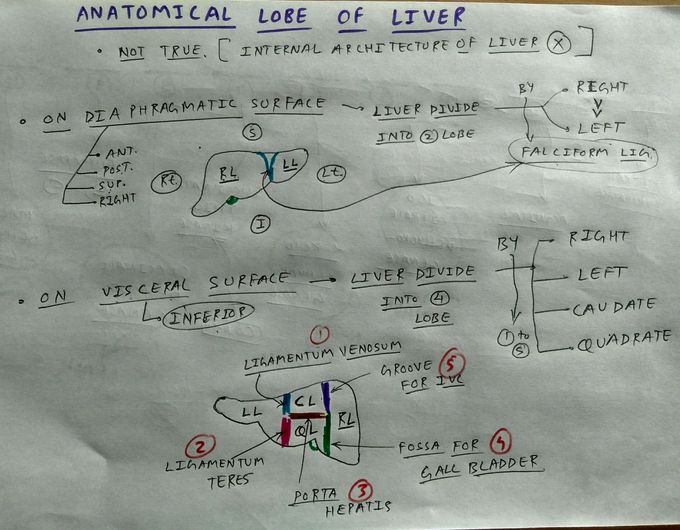 ANATOMICAL LOBE OF LIVER
• NOT TRUE. [INTERNAL ARCHITECTURE OF LIVER X]
• ON DIAPHRAGMATIC SURFACE → LIVER DIVIDE INTO 2 LOBE
BY
RIGHT
LEFT
FALCIFORM LIG.
ANT.
POST.
SUP.
RIGHT
S
Rt.
RL
LL
Lt.
I
• ON VISCERAL SURFACE → LIVER DIVIDE INTO 4 LOBE
INFERIOR
BY
1 to 5
RIGHT
LEFT
CAUDATE
QUADRATE
1
LIGAMENTUM VENOSUM
GROOVE 5
FOR IVC
LL
CL
QL
RL
2
LIGAMENTUM
TERES
FOSSA FOR 4
GALL BLADDER
PORTA 3
HEPATIS